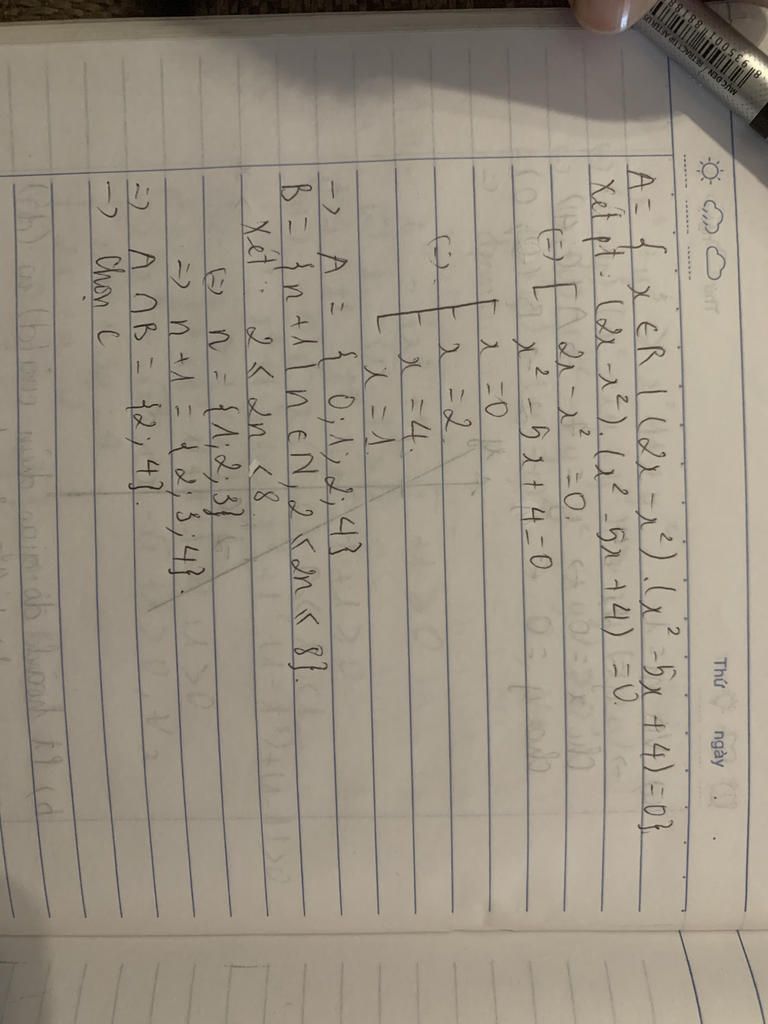 Thứ
ngày
A = { x ∈ R | (2x - x²).(x² - 5x + 4) = 0}
Xét pt: (2x - x²).(x² - 5x + 4) = 0.
(=) [ 2x - x² = 0.
x² - 5x + 4 = 0
(=) [ x = 0
x = 2
x = 4.
x = 1.
→ A = { 0; 1; 2; 4}
B = {n+1 | n ∈ N, 2 ≤ 2n ≤ 8}.
Xét: 2 ≤ 2n < 8.
(=) n = {1; 2; 3}
=) n + 1 = {2; 3; 4}.
=) A ∩ B = {2; 4}.
→ Chọn C
MỰC ĐEN
8 935001 8